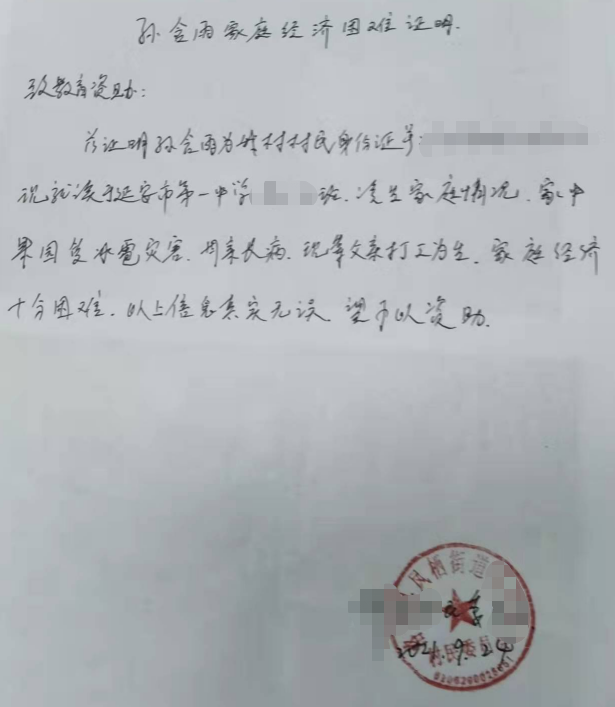 孙含雨家庭经济困难证明.
致教育资助:
兹证明孙含雨为 村村民身份证号:
现就读于延安市第一中学 班.该生家庭情况.家中
果园受冰雹灾害. 母亲长病. 现靠父亲打工为生. 家庭经济
十分困难.以上信息真实无误.望予以资助.
凤栖街道
2021.9.24
村民委员